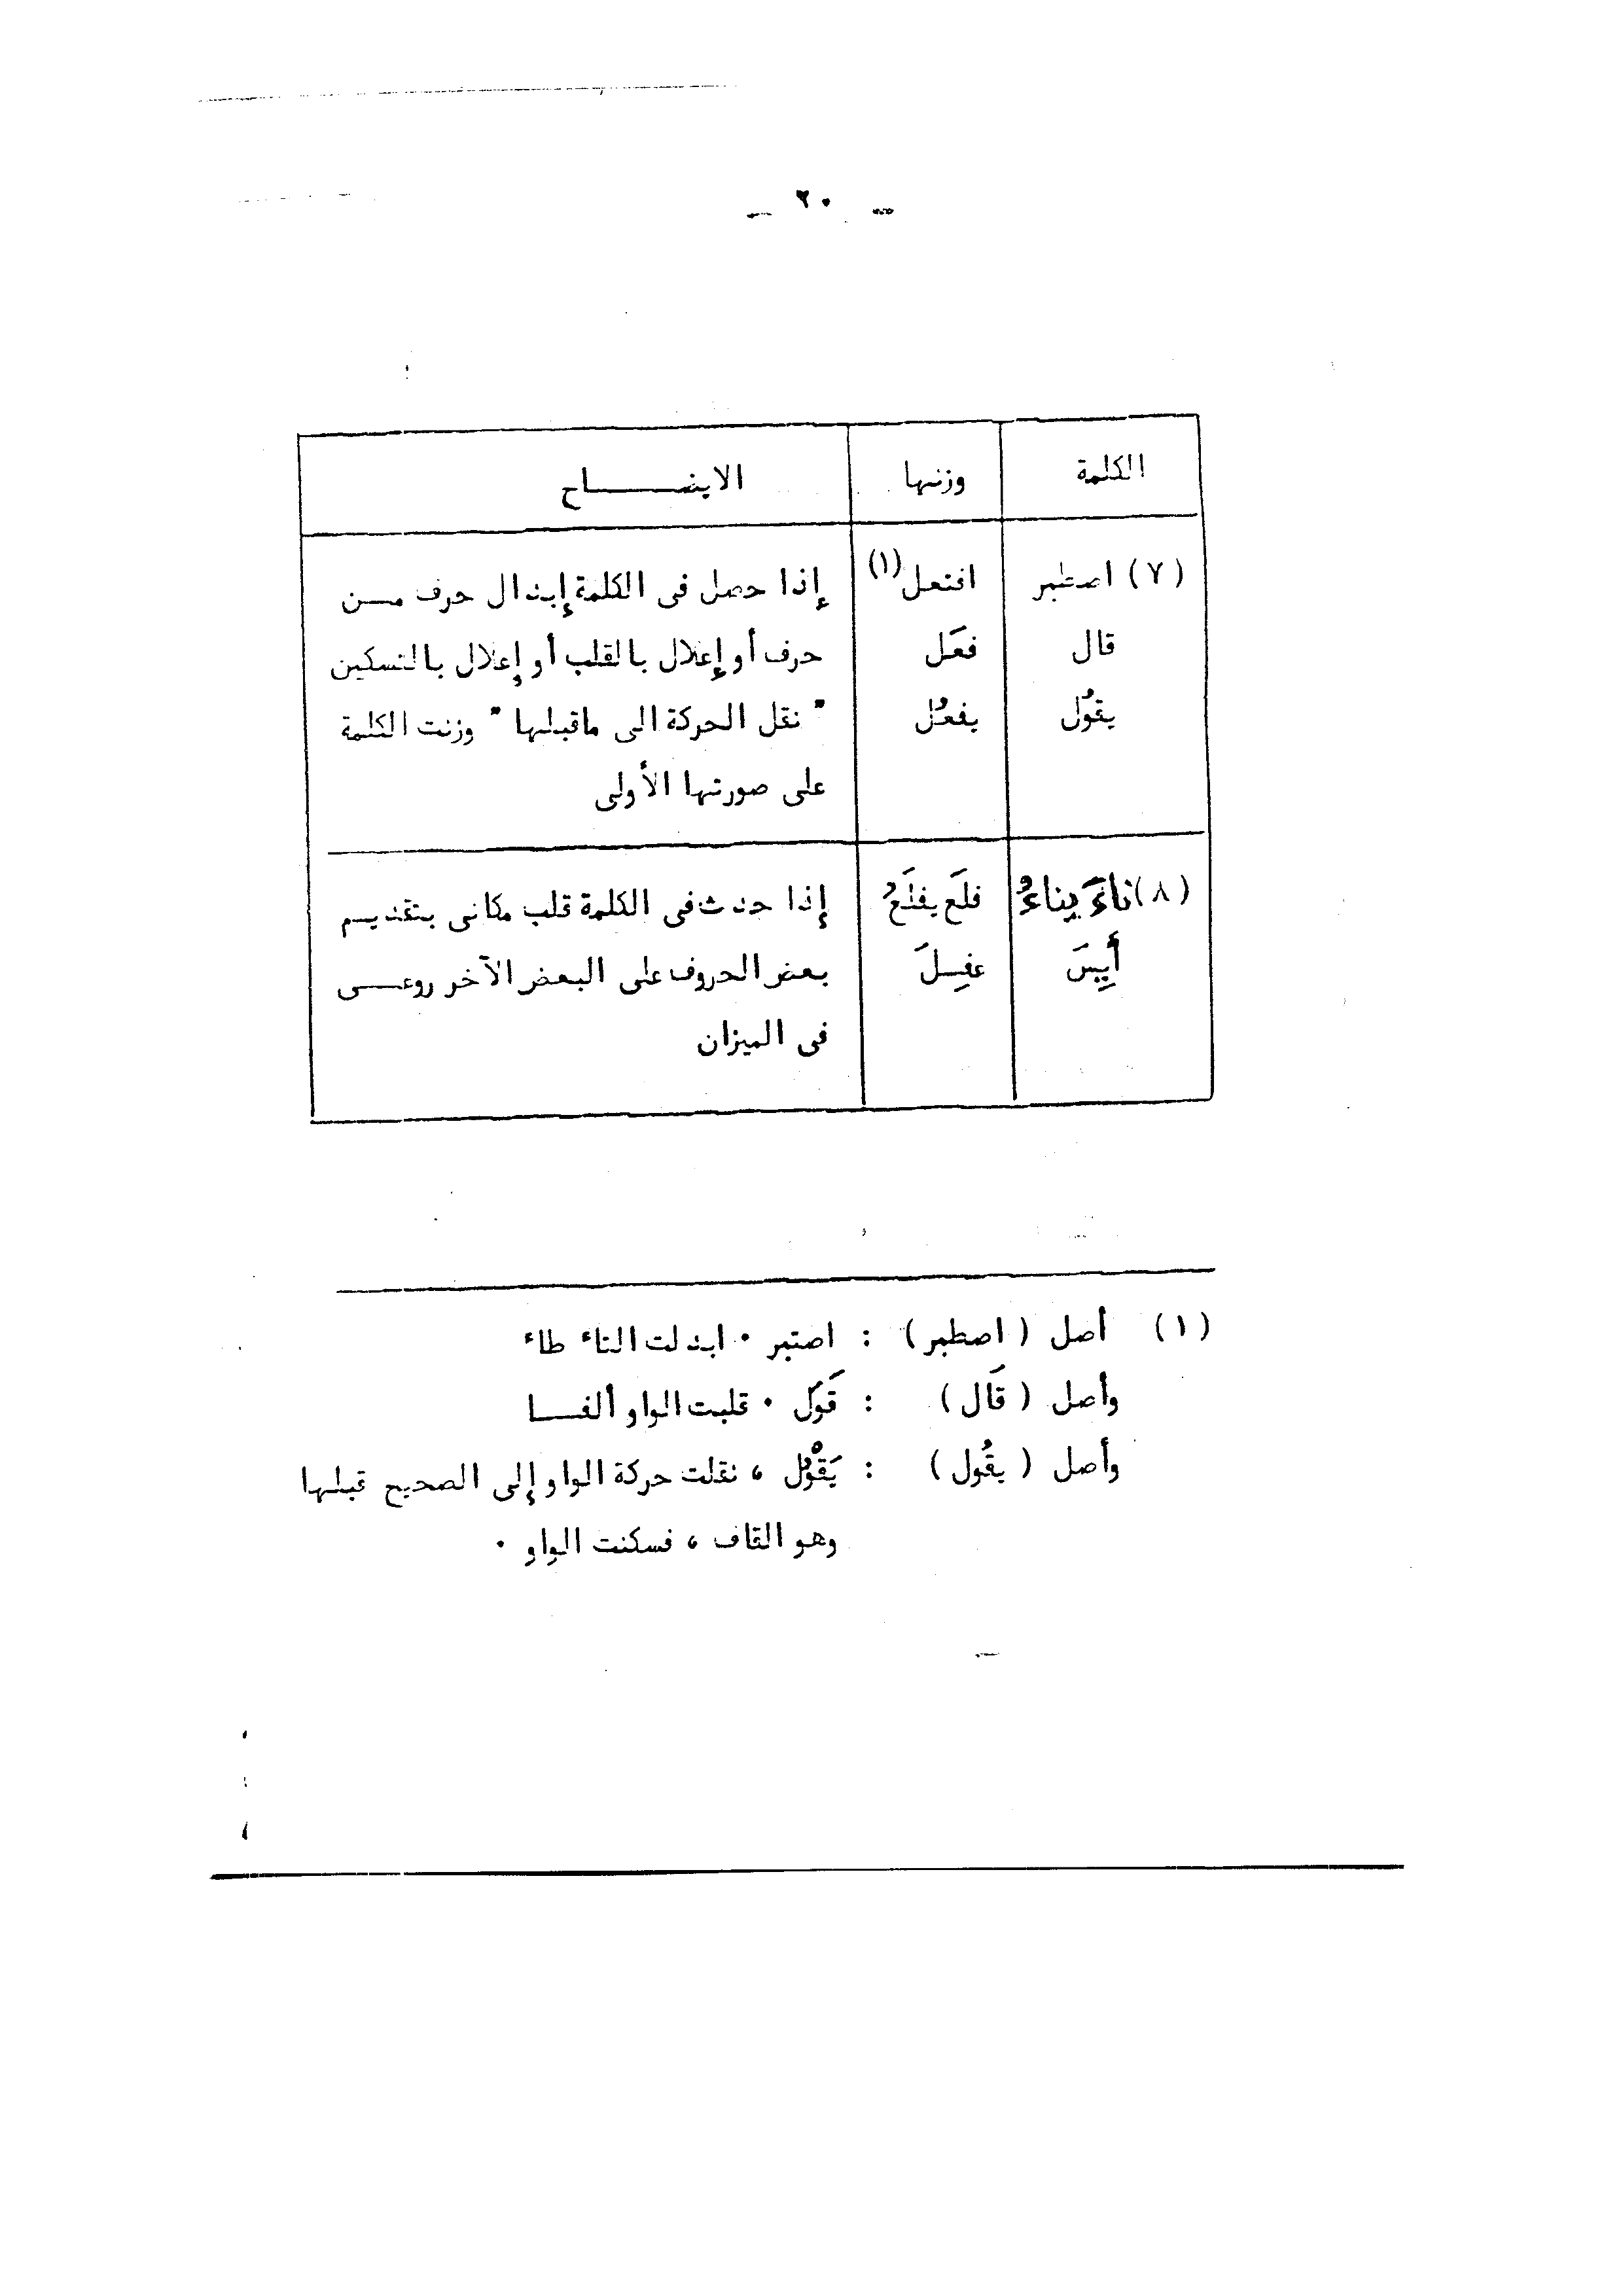 – ٢٠ –
الكلمة وزنها الايضـــــاح
(٧) اصطبر افتعل(١) إذا حصل فى الكلمة إبدال حرف مـــن
قال فعَل حرف أو إعلال بالقلب أو إعلال بالتسكين
يقُول يفعُل " نقل الحركة الى ماقبلها " وزنت الكلمة
على صورتها الأولى
(٨) ناءَ يناءُ فلَع يفلَعُ إذا حدث فى الكلمة قلب مكانى بتقديــم
أَيِسَ عفِـلَ بعض الحروف على البعض الآخر روعــى
فى الميزان
(١) أصل ( اصطبر) : اصتبر ٠ ابدلت التاء طاء
وأصل ( قَال ) : قَوَل ٠ قلبت الواو ألفــا
وأصل ( يقُول ) : يَقْوُل ، نقلت حركة الواو إلى الصحيح قبلها
وهو القاف ، فسكنت الواو ٠